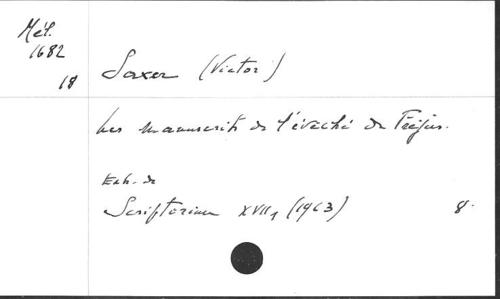 Mél.
1682
18
Saxer (Victor)
Les manuscrits de l'évêché de Fréjus.
Extr. de
Scriptorium XVII, (1963) 8.